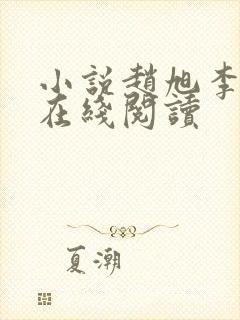 小説趙旭李
在綫閱讀
夏潮